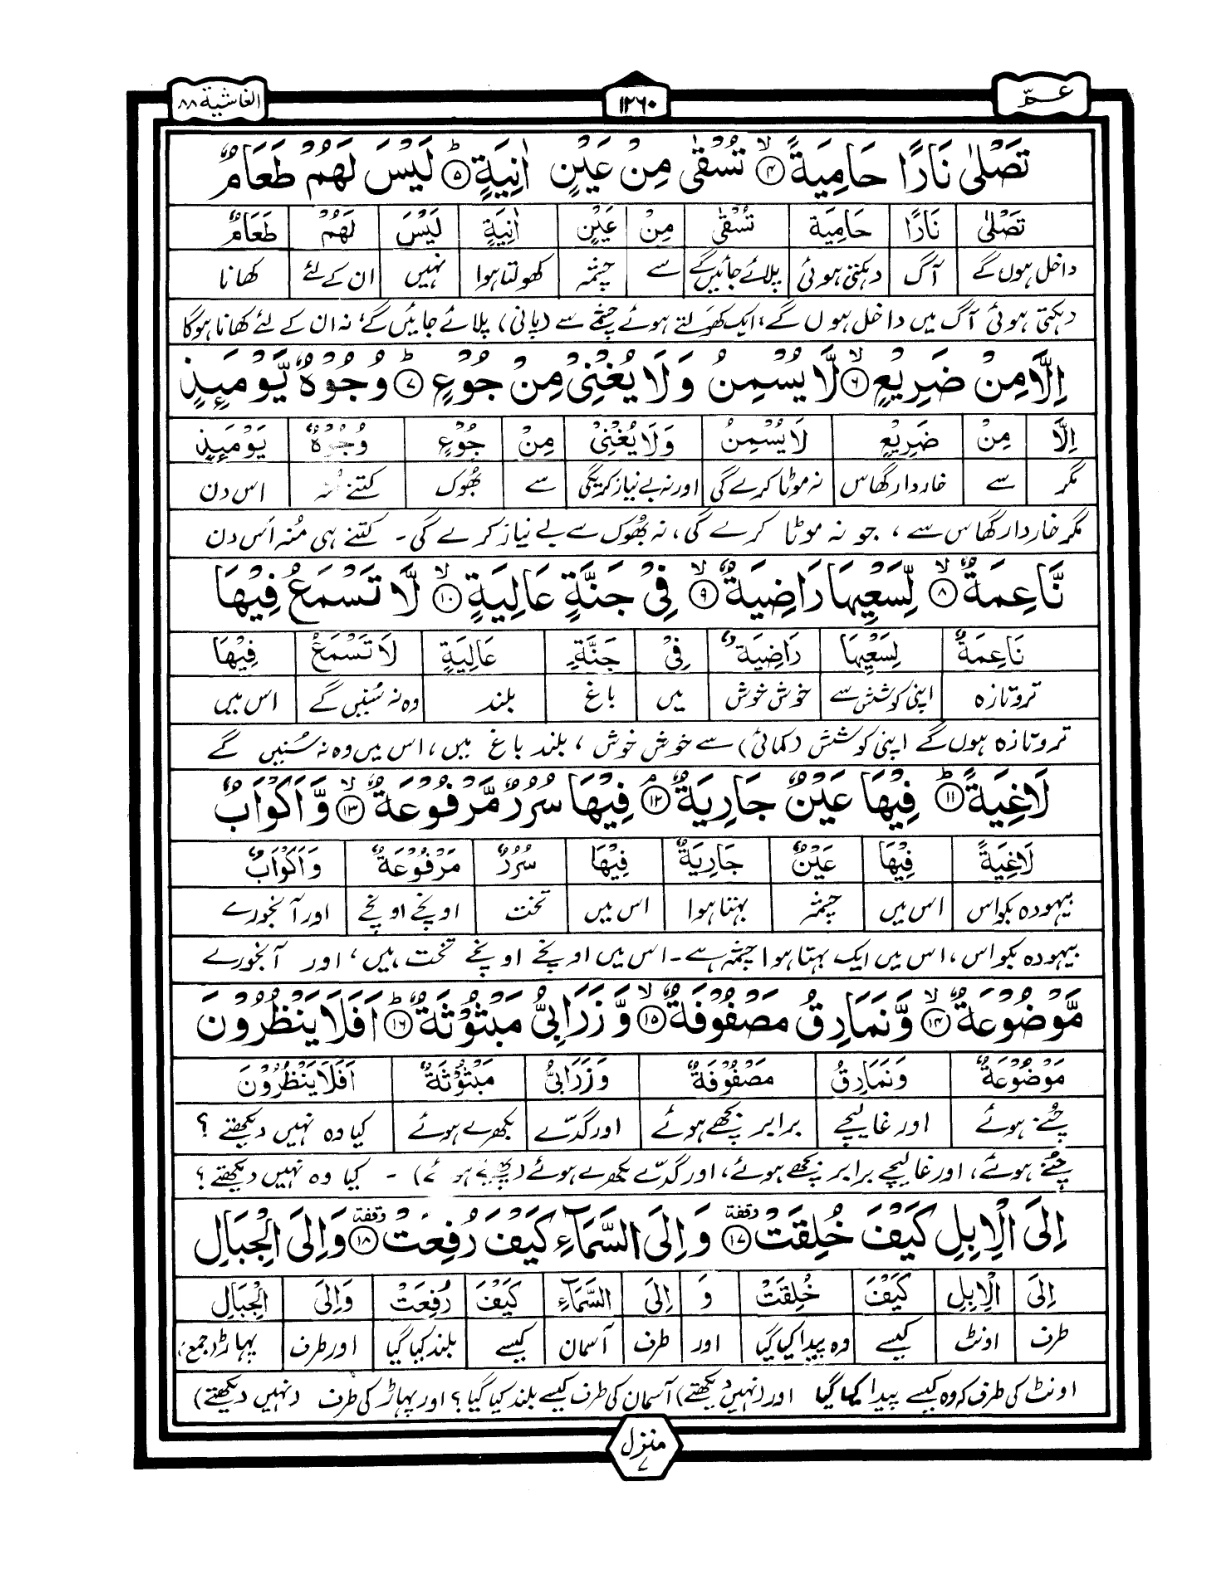 عـمّ
۱۲٦۰
الغاشية ۸۸
تَصْلٰى نَارًا حَامِيَةً ۙ﴿۴﴾ تُسْقٰى مِنْ عَيْنٍ اٰنِيَةٍ ؕ﴿۵﴾ لَيْسَ لَهُمْ طَعَامٌ
تَصْلٰى نَارًا حَامِيَة تُسْقٰى مِنْ عَيْنٍ اٰنِيَةٍ لَيْسَ لَهُمْ طَعَامٌ
داخل ہوں گے آگ دہکتی ہوئی پلائے جائیں گے سے چشمہ کھولتا ہوا نہیں ان کے لئے کھانا
دہکتی ہوئی آگ میں داخل ہوں گے، ایک کھولتے ہوئے چشمے سے (پانی) پلائے جائیں گے، نہ ان کے لئے کھانا ہوگا
اِلَّا مِنْ ضَرِيْعٍ ۙ﴿۶﴾ لَّا يُسْمِنُ وَلَا يُغْنِىْ مِنْ جُوْعٍ ؕ﴿۷﴾ وُجُوْهٌ يَّوْمَئِذٍ
اِلَّا مِنْ ضَرِيْعٍ لَا يُسْمِنُ وَلَا يُغْنِىْ مِنْ جُوْعٍ وُجُوْهٌ يَوْمَئِذٍ
مگر سے خاردار گھاس نہ موٹا کرے گی اور نہ بے نیاز کریگی سے بھوک کتنے منہ اس دن
مگر خاردار گھاس سے، جو نہ موٹا کرے گی، نہ بھُوک سے بے نیاز کرے گی۔ کتنے ہی مُنہ اُس دن
نَّاعِمَةٌ ۙ﴿۸﴾ لِّسَعْيِهَا رَاضِيَةٌ ۙ﴿۹﴾ فِىْ جَنَّةٍ عَالِيَةٍ ۙ﴿۱۰﴾ لَّا تَسْمَعُ فِيْهَا
نَاعِمَةٌ لِسَعْيِهَا رَاضِيَةٌ فِىْ جَنَّةٍ عَالِيَةٍ لَا تَسْمَعُ فِيْهَا
تروتازہ اپنی کوشش سے خوش خوش میں باغ بلند وہ نہ سُنیں گے اس میں
تروتازہ ہوں گے اپنی کوشش (کمائی) سے خوش خوش، بلند باغ میں، اس میں وہ نہ سُنیں گے
لَاغِيَةً ؕ﴿۱۱﴾ فِيْهَا عَيْنٌ جَارِيَةٌ ۘ﴿۱۲﴾ فِيْهَا سُرُرٌ مَّرْفُوْعَةٌ ۙ﴿۱۳﴾ وَّاَكْوَابٌ
لَاغِيَةً فِيْهَا عَيْنٌ جَارِيَةٌ فِيْهَا سُرُرٌ مَرْفُوْعَةٌ وَاَكْوَابٌ
بیہودہ بکواس اس میں چشمہ بہتا ہوا اس میں تخت اونچے اونچے اور آبخورے
بیہودہ بکواس، اس میں ایک بہتا ہوا چشمہ ہے۔ اس میں اونچے اونچے تخت ہیں، اور آبخورے
مَّوْضُوْعَةٌ ۙ﴿۱۴﴾ وَّنَمَارِقُ مَصْفُوْفَةٌ ۙ﴿۱۵﴾ وَّزَرَابِىُّ مَبْثُوْثَةٌ ؕ﴿۱۶﴾ اَفَلَا يَنْظُرُوْنَ
مَوْضُوْعَةٌ وَنَمَارِقُ مَصْفُوْفَةٌ وَزَرَابِىُّ مَبْثُوْثَةٌ اَفَلَا يَنْظُرُوْنَ
چُنے ہوئے اور غالیچے برابر بچھے ہوئے اور گدّے بکھرے ہوئے کیا وہ نہیں دیکھتے؟
چُنے ہوئے، اور غالیچے برابر بچھے ہوئے، اور گدّے بکھرے ہوئے (بچھے ہوئے) - کیا وہ نہیں دیکھتے؟
اِلَى الْاِبِلِ كَيْفَ خُلِقَتْ وقفة ﴿۱۷﴾ وَاِلَى السَّمَآءِ كَيْفَ رُفِعَتْ وقفة ﴿۱۸﴾ وَاِلَى الْجِبَالِ
اِلَى الْاِبِلِ كَيْفَ خُلِقَتْ وَ اِلَى السَّمَآءِ كَيْفَ رُفِعَتْ وَاِلَى الْجِبَالِ
طرف اونٹ کیسے وہ پیدا کیا گیا اور طرف آسمان کیسے بلند کیا گیا اور طرف پہاڑ (جمع)
اونٹ کی طرف کہ وہ کیسے پیدا کیا گیا اور (نہیں دیکھتے) آسمان کی طرف کیسے بلند کیا گیا؟ اور پہاڑ کی طرف (نہیں دیکھتے)
منزل ۷